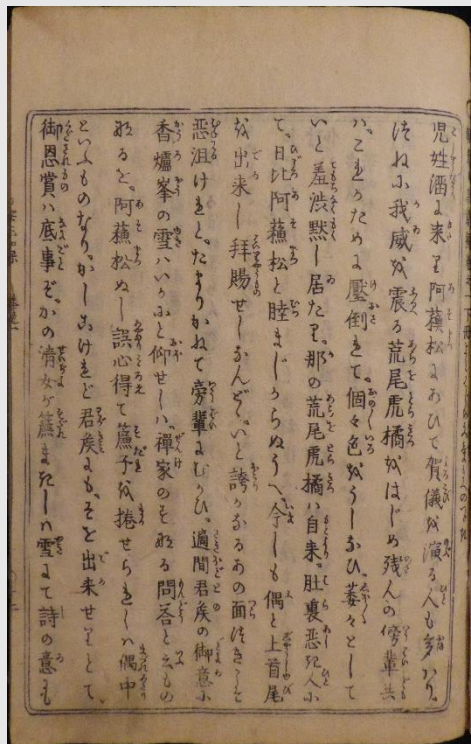 児姓酒に来て阿蘇松にあひて賀儀を演る人も多かり。
つねに我威を震る荒尾虎橘をはじめ残んの傍輩共
ハ。これがために壓倒れて。個々色をうしなひ萎々として
いと羞渋黙し居たり。那の荒尾虎橘ハ自来。肚裏悪き人に
て。日比阿蘇松と睦まじからぬうへ。今しも偶と上首尾
を出来し拝賜せしなんど。いと誇がなるあの面つきこそ
悪沮けれと。たまりかねて旁輩にむかひ。適間君矦の御意に
香爐峯の雪ハいかにと仰せしハ。禪家のそなる問答と云もの
なるを。阿蘇松ぬし誤心得て簾子を捲せられしハ偶中
といふものなり。かしこけれど君矦にも。そを出来せりとて。
御恩賞ハ底事ぞ。かの清女が簾まきしハ雪にて詩の意も